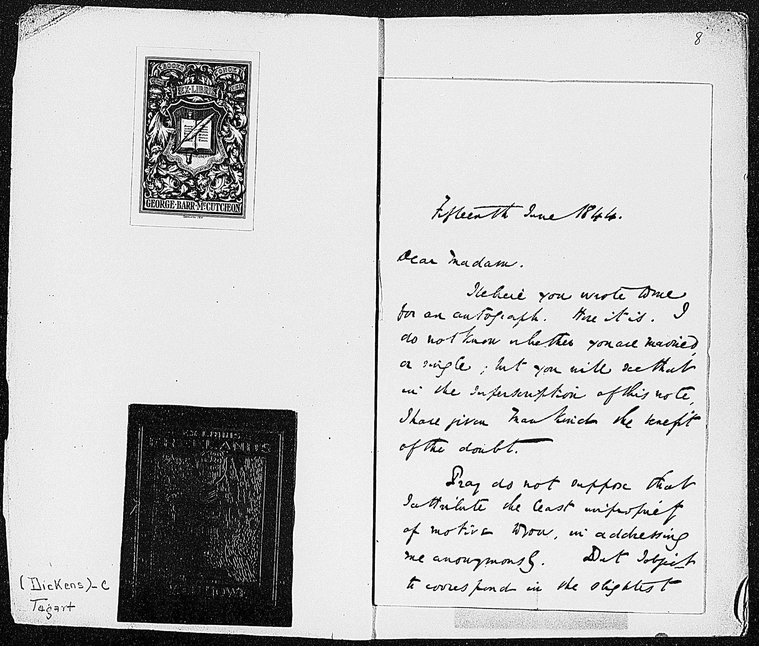 EX·LIBRIS
GEORGE·BARR·McCUTCHEON
EX LIBRIS
(Dickens)-C
Tagart
8
Fifteenth June 1844.
Dear Madam.
I believe you wrote to me
for an autograph. Here it is. I
do not know whether you are married
or single; but you will see that
in the superscription of this note,
I have given Mankind the benefit
of the doubt.
Pray do not suppose that
I attribute the least impropriety
of motive to you, in addressing
me anonymously. But I object
to correspond in the slightest